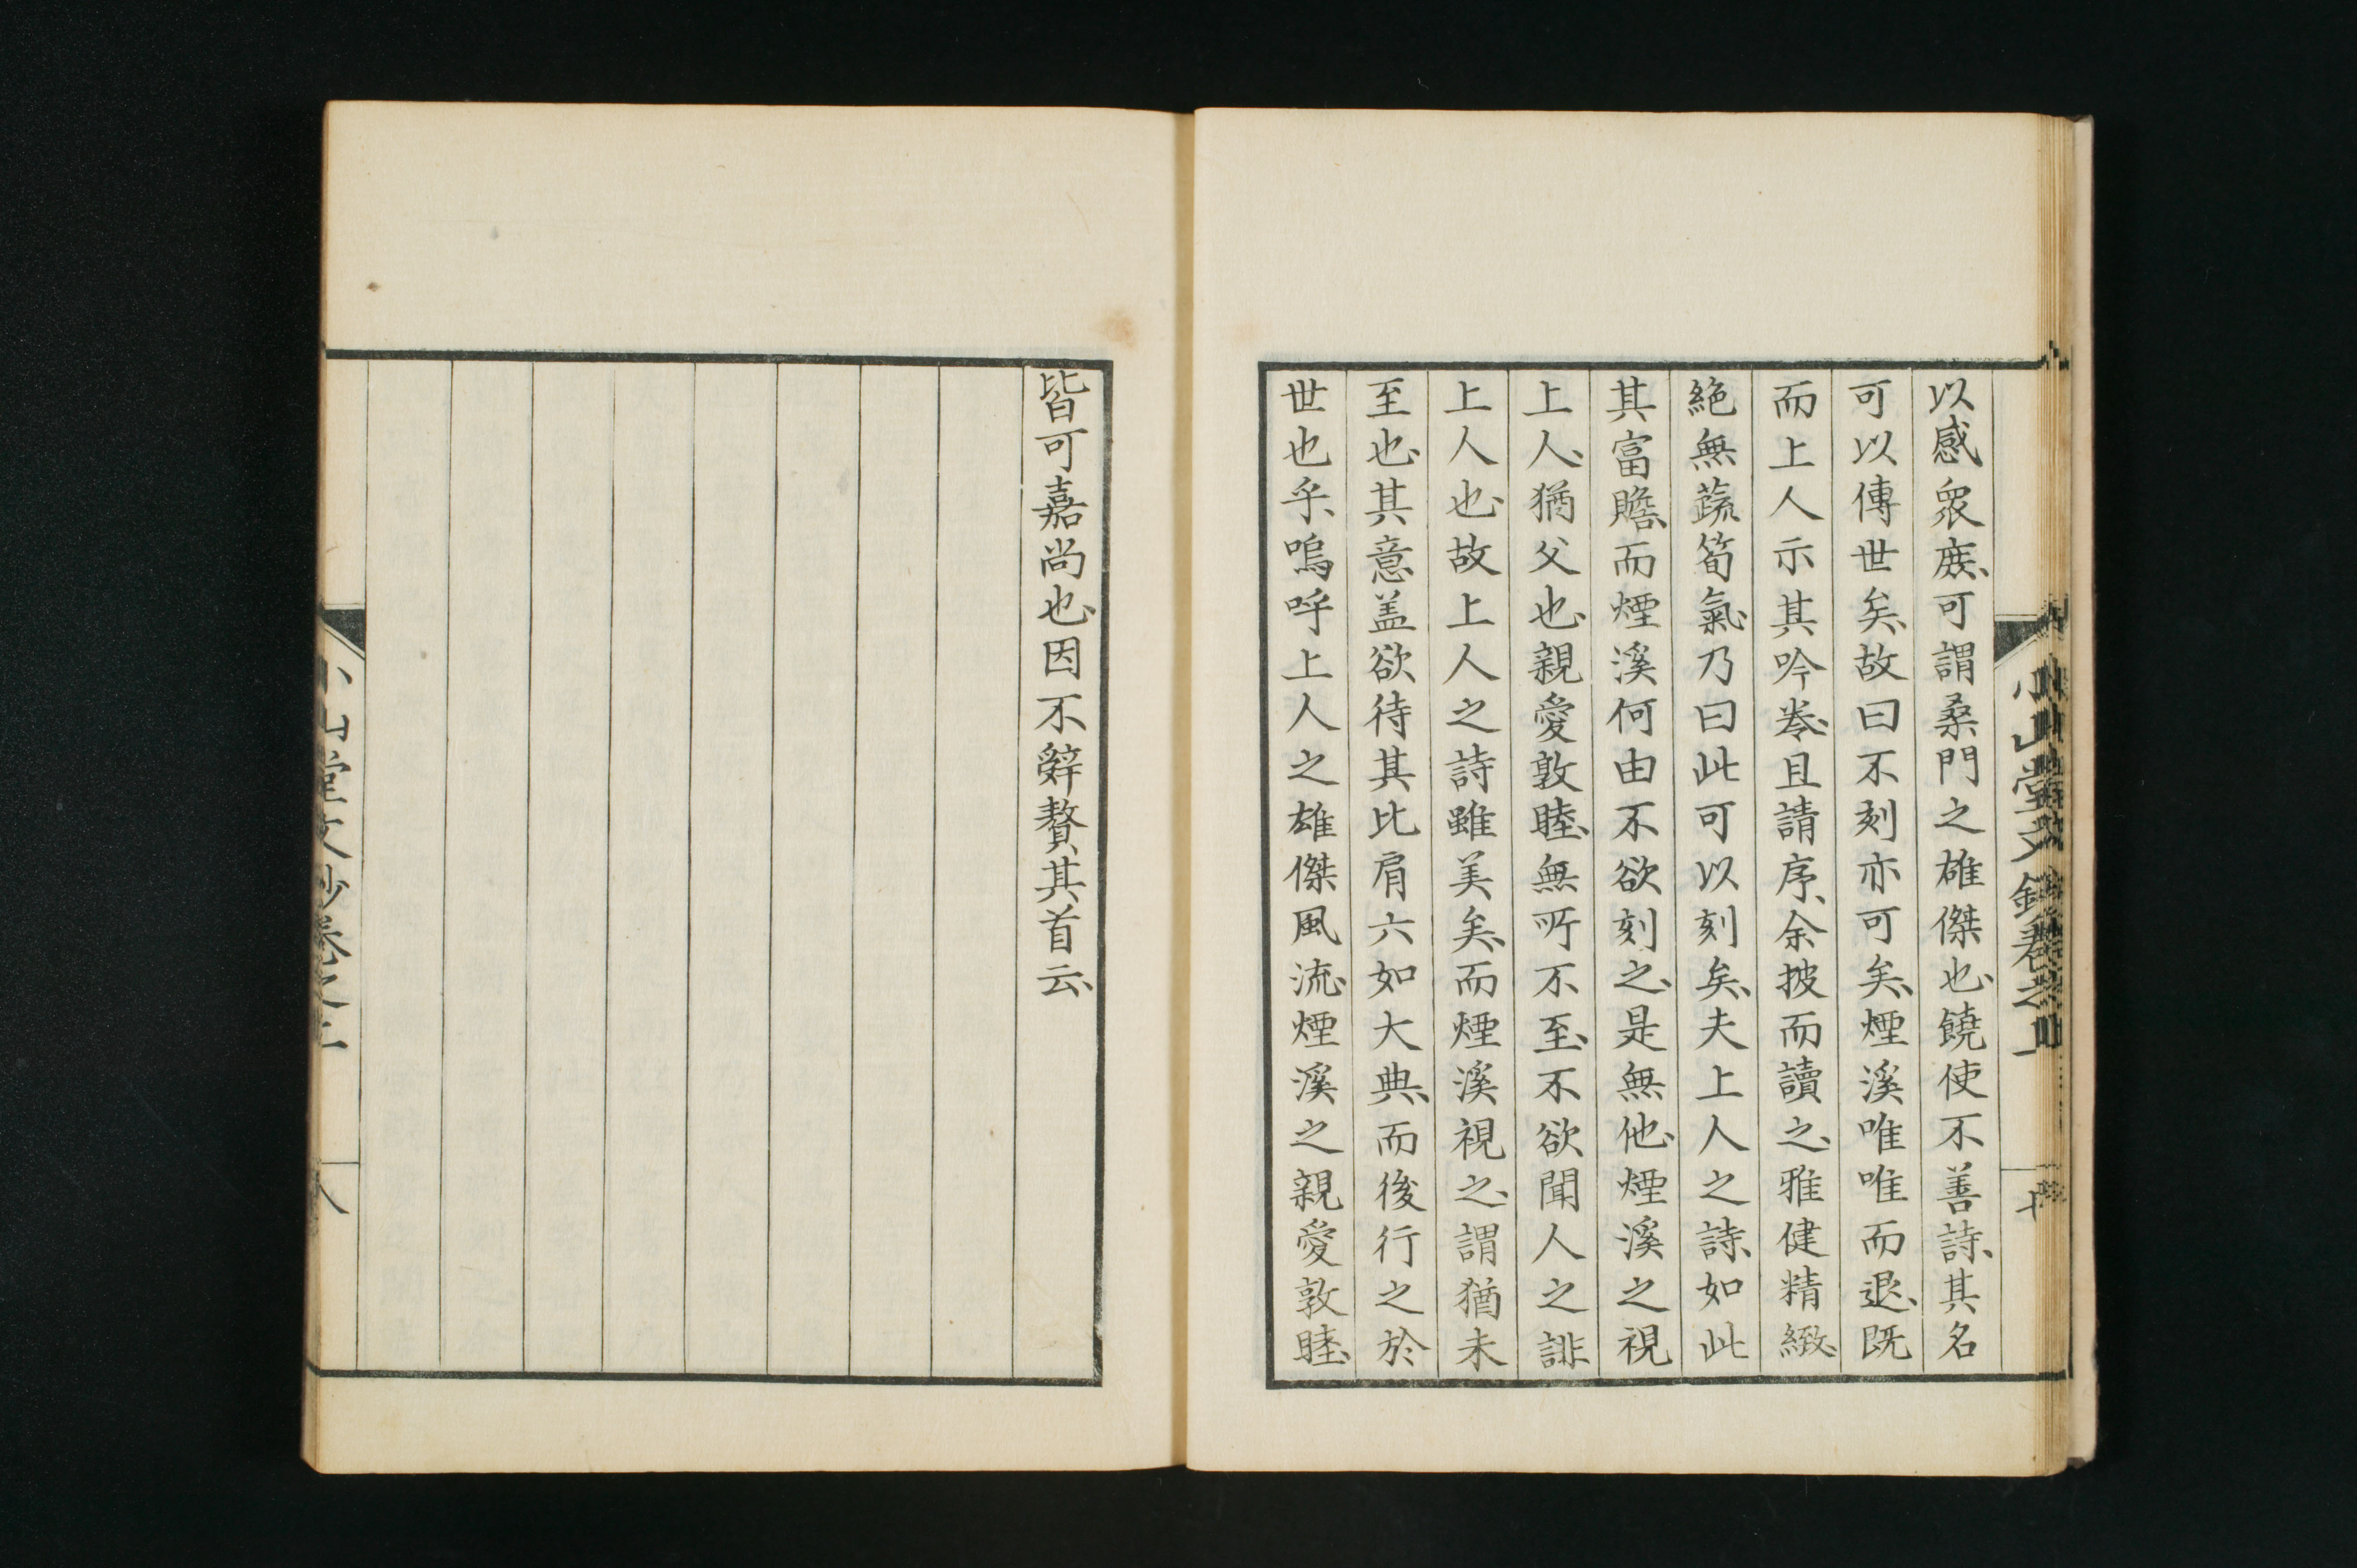 以感衆庶、可謂桑門之雄傑也、饒使不善詩、其名
可以傳世矣、故曰不刻亦可矣、煙溪唯唯而退、既
而上人示其吟卷、且請序、余披而讀之、雅健精緻、
絶無蔬筍氣、乃曰此可以刻矣、夫上人之詩、如此
其富贍、而煙溪何由不欲刻之、是無他、煙溪之視
上人、猶父也、親愛敦睦、無所不至、不欲聞人之誹
上人也、故上人之詩雖美矣、而煙溪視之、謂猶未
至也、其意盖欲待其比肩六如大典、而後行之於
世也乎、嗚呼上人之雄傑風流、煙溪之親愛敦睦、
皆可嘉尚也、因不辭贅其首云、
小山堂文鈔卷之
小山堂文鈔卷之上
八